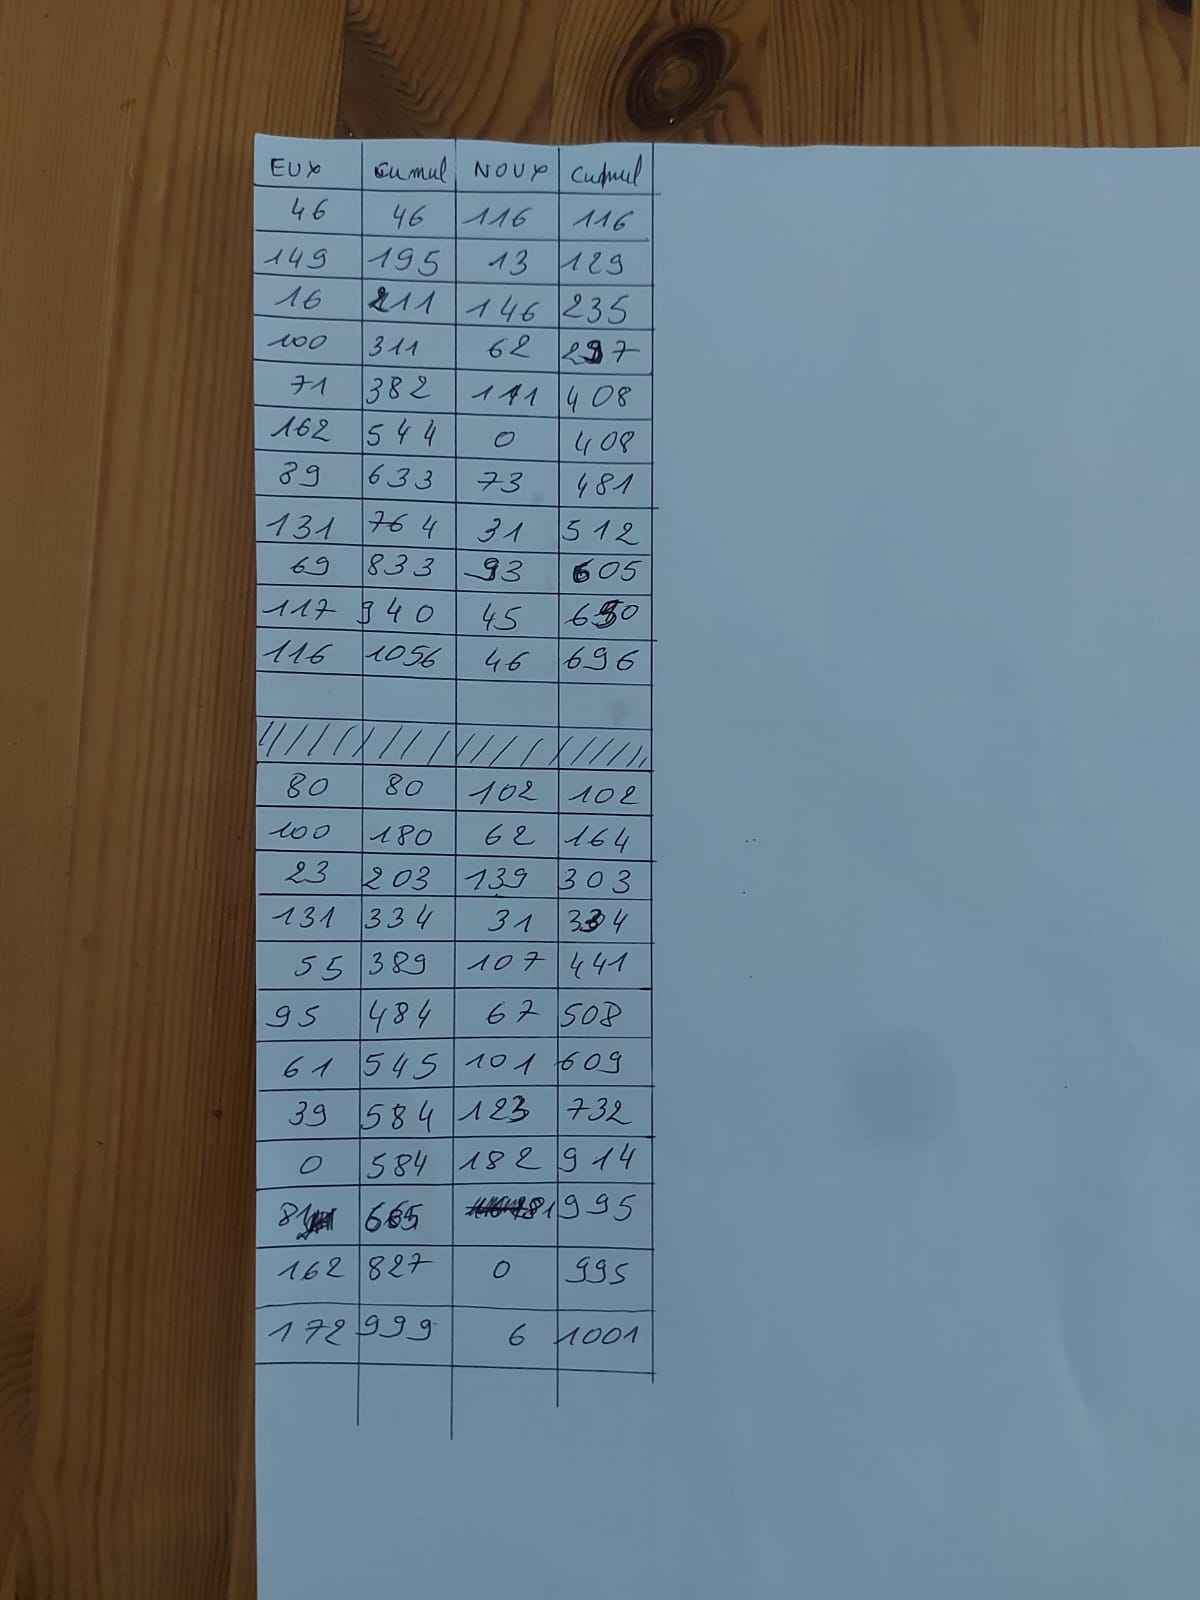 EUX Cumul NOUX Cumul
46 46 116 116
149 195 13 129
16 211 146 235
100 311 62 297
71 382 111 408
162 544 0 408
89 633 73 481
131 764 31 512
69 833 93 605
117 940 45 650
116 1056 46 696
80 80 102 102
100 180 62 164
23 203 139 303
131 334 31 334
55 389 107 441
95 484 67 508
61 545 101 609
39 584 123 732
0 584 182 914
81 665 81 995
162 827 0 995
172 999 6 1001